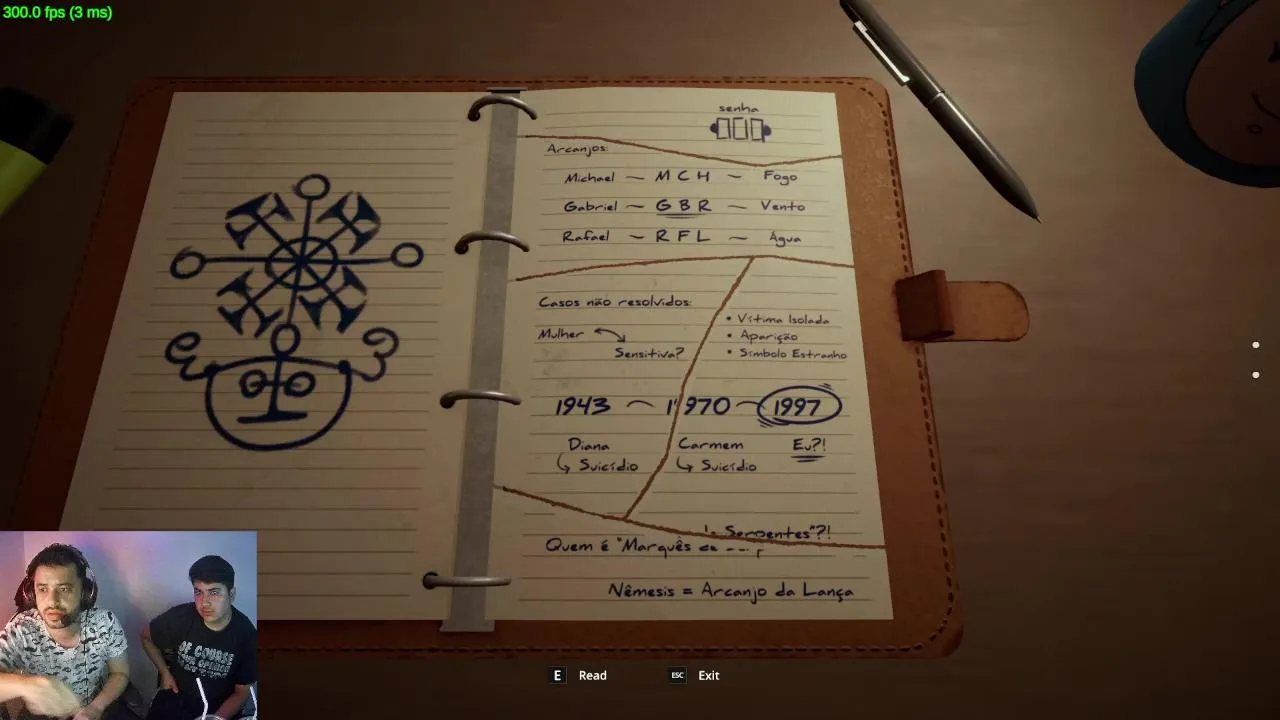 300.0 fps (3 ms)
senha
Arcanjos:
Michael — M C H — Fogo
Gabriel — G B R — Vento
Rafael — R F L — Água
Casos não resolvidos:
Mulher
Sensitiva?
• Vítima Isolada
• Aparição
• Símbolo Estranho
1943 — 1970 — 1997
Diana
Suicídio
Carmem
Suicídio
Eu?!
Quem é "Marquês Serpentes"?!
Nêmesis = Arcanjo da Lança
OF COURSE
E Read
ESC Exit